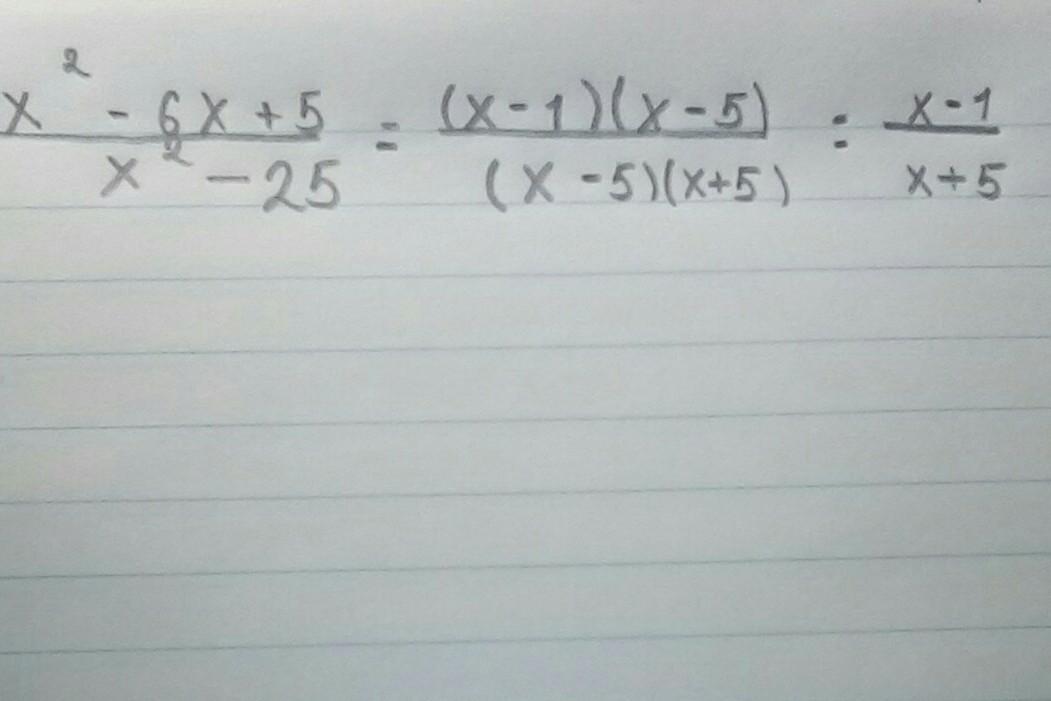 x² - 6x + 5 / x² - 25 = (x - 1)(x - 5) / (x - 5)(x + 5) = x - 1 / x + 5